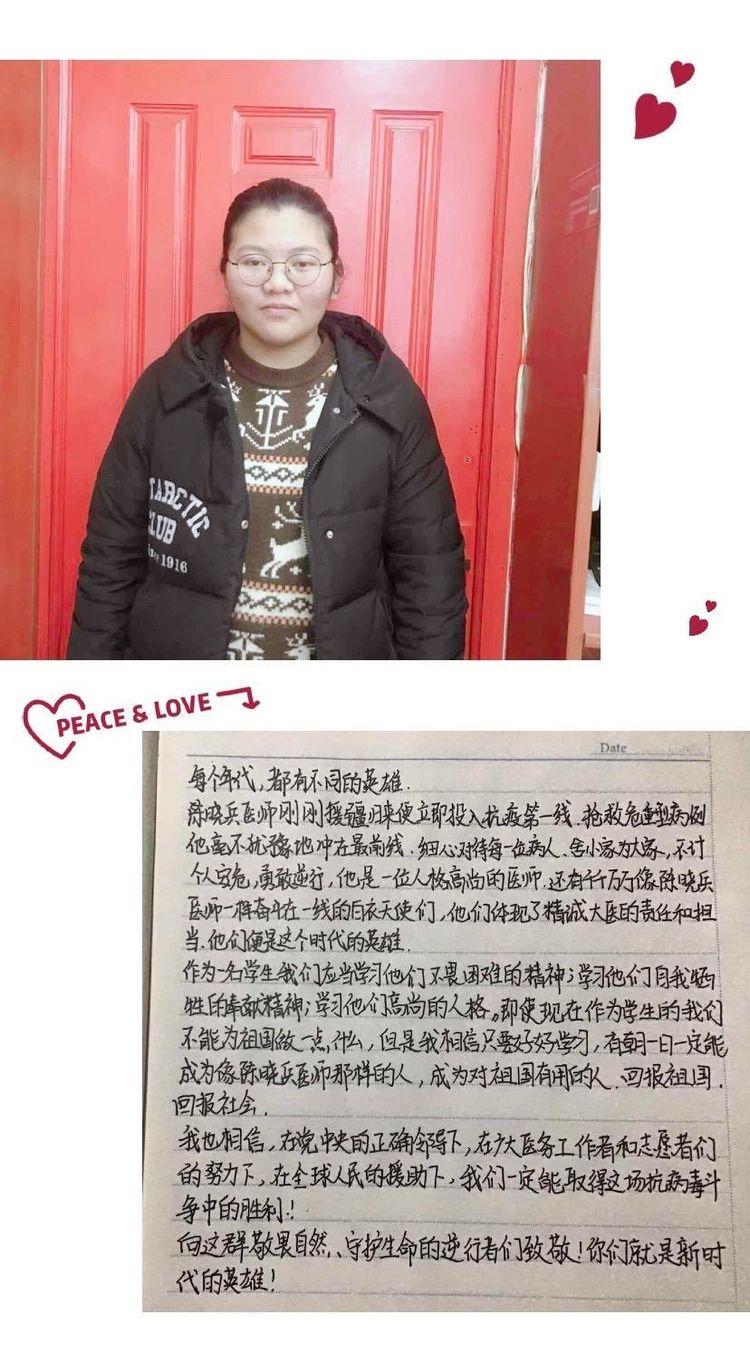 TARCTIC
LUB
1916
PEACE & LOVE
Date
每个年代，都有不同的英雄.
陈晓兵医师刚刚援疆归来便立即投入抗疫第一线.抢救危重型病例
他毫不犹豫地冲在最前线.细心对待每一位病人、舍小家为大家，不计
个人安危，勇敢逆行，他是一位人格高尚的医师.还有千千万万像陈晓兵
医师一样奋斗在一线的白衣天使们，他们体现了精诚大医的责任和担
当.他们便是这个时代的英雄.
作为一名学生我们应当学习他们不畏困难的精神；学习他们自我牺
牲的奉献精神；学习他们高尚的人格。即使现在作为学生的我们
不能为祖国做一点什么，但是我相信只要好好学习，有朝一日一定能
成为像陈晓兵医师那样的人，成为对祖国有用的人.回报祖国.
回报社会.
我也相信，在党中央的正确领导下，在广大医务工作者和志愿者们
的努力下，在全球人民的援助下，我们一定能取得这场抗病毒斗
争中的胜利！
向这群敬畏自然、守护生命的逆行者们致敬！你们就是新时
代的英雄！